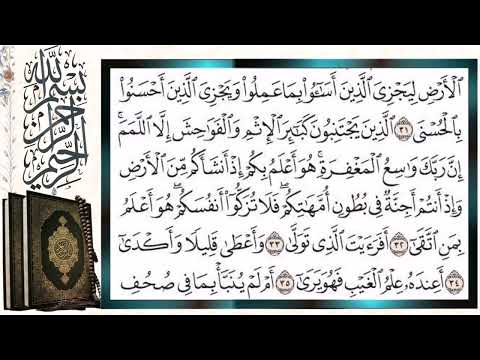 ٱلْأَرْضِ لِيَجْزِيَ ٱلَّذِينَ أَسَٰٓـُٔوا۟ بِمَا عَمِلُوا۟ وَيَجْزِيَ ٱلَّذِينَ أَحْسَنُوا۟
بِٱلْحُسْنَى ٣١ ٱلَّذِينَ يَجْتَنِبُونَ كَبَٰٓئِرَ ٱلْإِثْمِ وَٱلْفَوَٰحِشَ إِلَّا ٱللَّمَمَ ۚ
إِنَّ رَبَّكَ وَٰسِعُ ٱلْمَغْفِرَةِ ۚ هُوَ أَعْلَمُ بِكُمْ إِذْ أَنشَأَكُم مِّنَ ٱلْأَرْضِ
وَإِذْ أَنتُمْ أَجِنَّةٌ فِى بُطُونِ أُمَّهَٰتِكُمْ ۖ فَلَا تُزَكُّوٓا۟ أَنفُسَكُمْ ۖ هُوَ أَعْلَمُ
بِمَنِ ٱتَّقَىٰٓ ٣٢ أَفَرَءَيْتَ ٱلَّذِى تَوَلَّىٰ ٣٣ وَأَعْطَىٰ قَلِيلًا وَأَكْدَىٰٓ
٣٤ أَعِندَهُۥ عِلْمُ ٱلْغَيْبِ فَهُوَ يَرَىٰٓ ٣٥ أَمْ لَمْ يُنَبَّأْ بِمَا فِى صُحُفِ
بسم الله الرحمن الرحيم